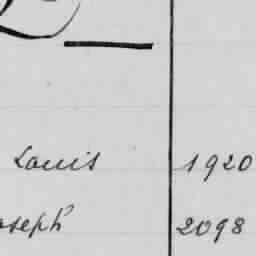 Louis 1920
oseph 2098